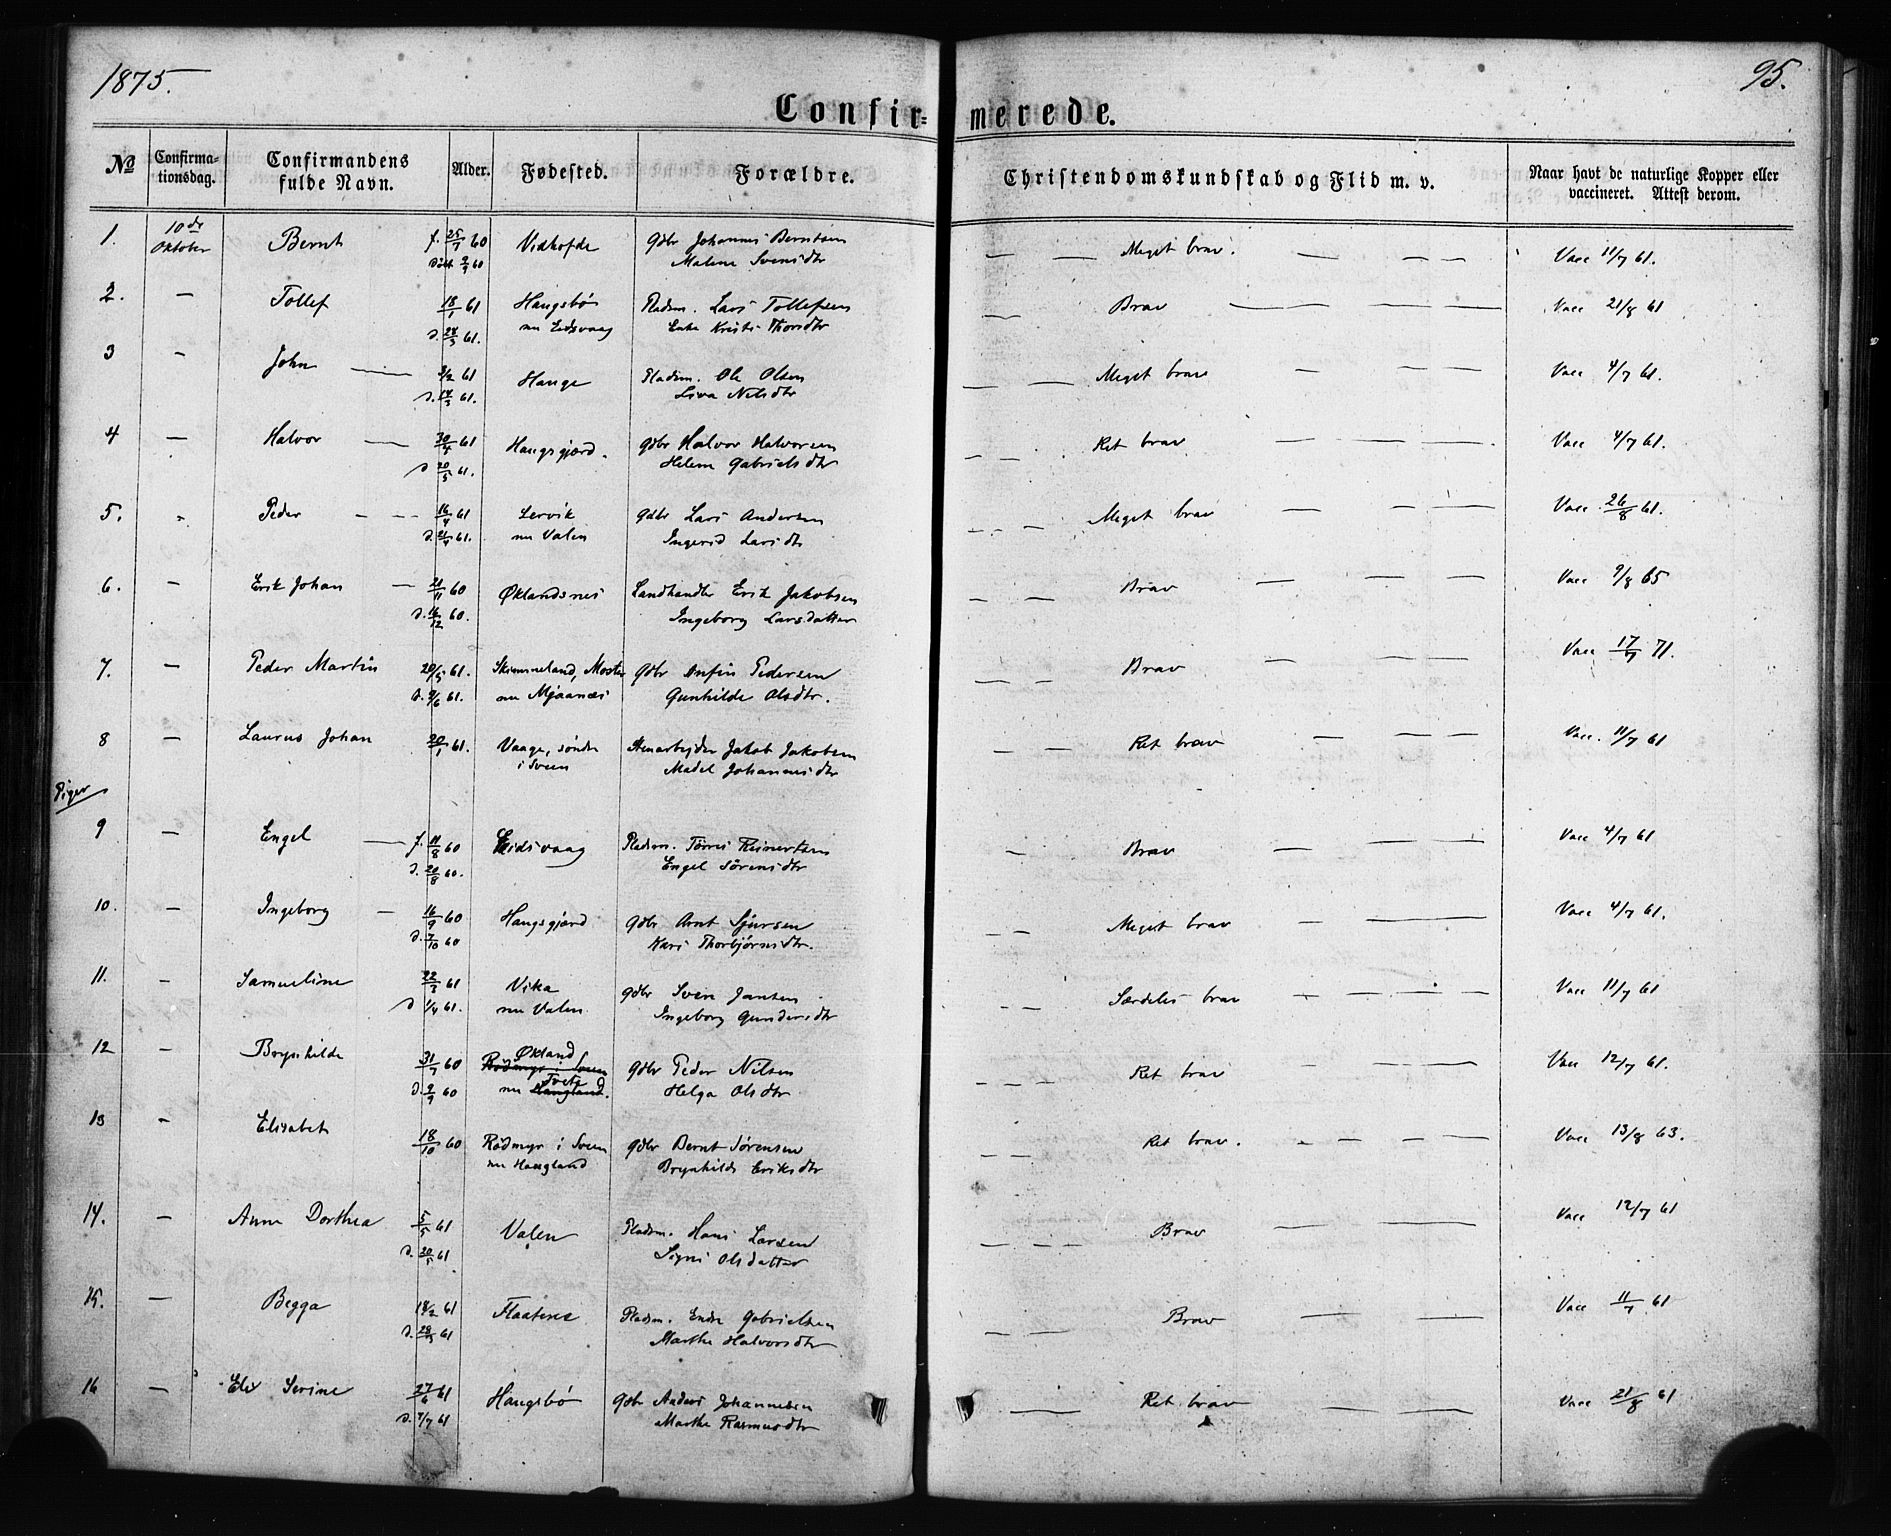 1875.
95.
Confirmerede.
№ Confirmationsdag. Confirmandens fulde Navn. Alder. Fødested. Forældre. Christendomskundskab og Flid m. v. Naar havt de naturlige Kopper eller vaccineret. Attest derom.
1. 10de Oktober Bernt f. 25/7 60 Gdbr Johannes Berntsen — — Meget brav. — — — Vacc 11/7 61.
døbt 2/9 60 Malene Svensdtr
2. — Tollef 18/1 61 Haugsbø Pladsm. Lars Tollefsen — — Brav — — — Vacc 21/8 61
d. 24/3 61. nu Eidsvaag Enke Kristi Thorsdtr
3 — John — 3/2 61 Hauge Pladsm. Ole Olsen — — Meget brav — — — Vacc 4/7 61.
d. 14/3 61. Siva Nelsdtr
4 — Halvor — 30/4 61 Haugsgjerd. Gdbr Halvor Halvorsen — — Ret brav — — — Vacc 4/7 61.
d 20/5 61. Helene Gabrielsdtr
5. — Peder — — 16/4 61 Lervik Gdbr Lars Andersen — — — Meget brav — — — Vacc. 26/8 61.
d. 21/4 61. nu Valen Ingerid Larsdtr
6. — Erik Johan — 21/11 60 Øklandsnes Landhandler Erik Jakobsen — — Brav — — — Vacc 9/8 65
d. 16/12 60. Ingeborg Larsdatter
7. — Peder Martin 20/5 61. Skimmeland, Moster Gdbr Anfin Pedersen — — Brav — — — Vacc 17/7 71.
d. 9/6 61. nu Mjaanæs Gunhilde Olsdtr.
8 — Laurus Johan 20/1 61. Vaage, søndre Stenarbejder Jakob Jakobsen — — Ret brav — — — Vacc. 11/7 61
i Sveen Madel Johannesdtr
Piger
9 — Engel — f. 11/8 60 Eidsvaag Pladsm. Tørris Reinertsen — Brav — — Vacc 4/7 61
d. 20/8 60. Engel Sørensdtr
10. — Ingeborg — 16/9 60 Haugsgjerd Gdbr Arnt Sjursen — — Meget brav — — Vacc 4/7 61.
d. 7/10 60 Kari Thorbjørnsdtr.
11. — Samueline 22/3 61 Vika Gdbr Sven Jansen — — Særdeles brav — — — — Vacc 11/7 61
d 1/4 61. nu Valen Ingeborg Gundersdtr
12 — Brynhilde 31/7 60 Økland Rödmyr i Sveen Gdbr Peder Nilsen — — Ret brav — — Vacc 12/7 61.
d. 2/9 60 nu Tveta Haugland. Helga Olsdtr
13 — Elisabet 18/10 60 Rödmyr i Sveen Gdbr Bernt Sørensen — — Ret brav. — — — — Vacc 13/8 63.
nu Haugland Brynhilde Eriksdtr
14. — Anne Dorthea 5/5 61 Valen Pladsm. Hans Larsen — — — Brav — — Vacc 12/7 61
d. 20/5 61 Signi Olsdatter
15. — Begga 14/2 61 Flaatene Pladsm. Endre Gabrielsen — — Brav — — Vacc 11/7 61
d. 28/3 61 Marthe Halvorsdtr
16 — Eli Serine 27/6 61 Haugsbø Gdbr Anders Johannesen — Ret brav — — — Vacc 21/8 61
d. 7/7 61 Marthe Rasmusdtr